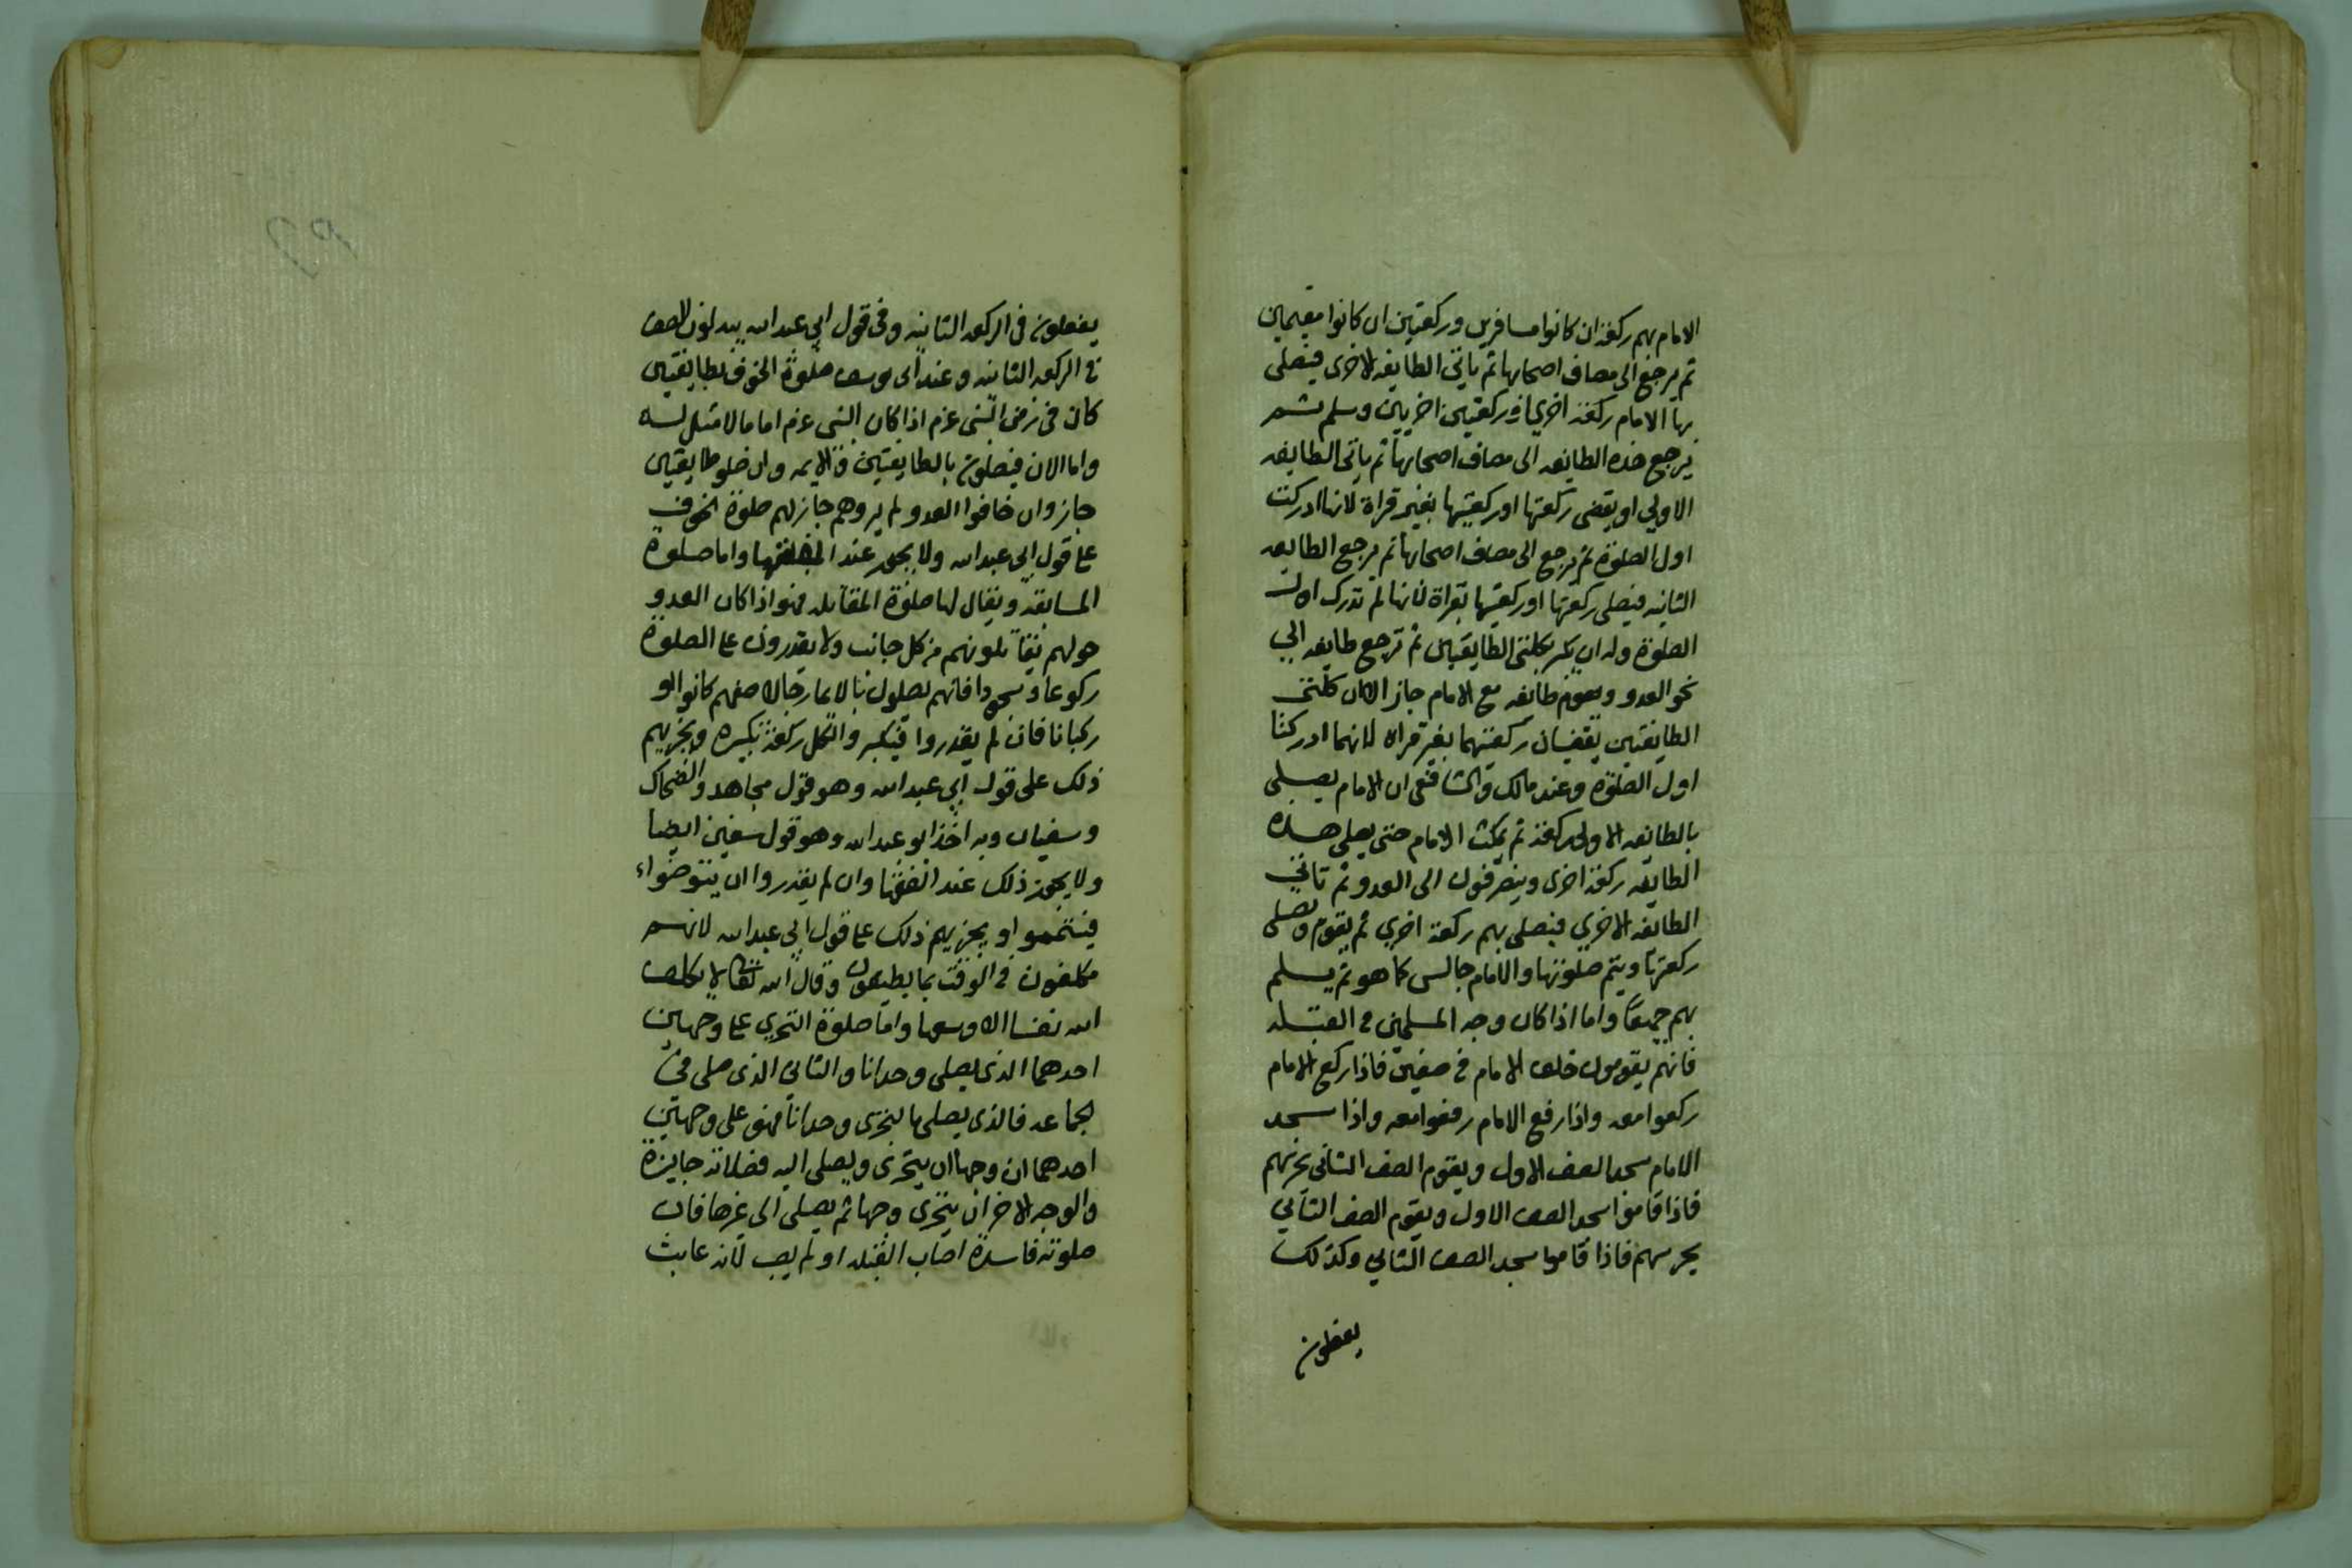 الامام بهم ركعة ان كانوا مسافرين وركعتين ان كانوا مقيمين
ثم يرجع الى مصاف اصحابها ثم ياتى الطايفه الاخرى فيصلى
بها الامام ركعة اخرى او ركعتين اخريين وسلم ثم
يرجع هذه الطايفه الى مصاف اصحابها ثم ياتى الطايفه
الاولى او يقضى ركعتها او ركعتيها بغير قراة لانها ادركت
اول الصلوة ثم يرجع الى مصاف اصحابها ثم يرجع الطايفه
الثانيه فيصلى ركعتها او ركعتيها بقراة لانها لم تدرك اول
الصلوة وله ان يكبر بكلتى الطايفتين ثم ترجع طايفه الى
نحو العدو ويقوم طايفه مع الامام جاز الا ان كلتى
الطايفتين يقضيان ركعتهما بغير قراة لانهما ادركتا
اول الصلوة وعند مالك والشافعى ان الامام يصلى
بالطايفه الاولى ركعة ثم يمكث الامام حتى يصلى هذه
الطايفه ركعة اخرى وينصرفون الى العدو ثم تاتى
الطايفه الاخرى فيصلى بهم ركعة اخرى ثم يقوم وتصلى
ركعتها ويتم صلوتها والامام جالس كما هو ثم يسلم
بهم جميعا واما اذا كان وجه المسلمين فى القبله
فانهم يقومون خلف الامام فى صفين فاذا ركع الامام
ركعوا معه واذا رفع الامام رفعوا معه واذا سجد
الامام سجد الصف الاول ويقوم الصف الثانى يحرسهم
فاذا قاموا سجد الصف الاول ويقوم الصف الثانى
يحرسهم فاذا قاموا سجد الصف الثانى وكذلك
يفعلون
يفعلون فى الركعه الثانيه وفى قول ابى عبد الله يبدلون الصف
فى الركعه الثانيه وعند ابى يوسف صلوة الخوف بطايفتين
كان فى زمن النبى عم اذا كان النبى عم اماما لا مثل له
واما الان فيصلون بالطايفتين وان صلوا طايفتين
جاز وان خافوا العدو ولم يروهم جاز لهم صلوة الخوف
على قول ابى عبد الله ولا يجوز عند الفقها واما صلوة
المسايفه ويقال لها صلوة المقاتله فهو اذا كان العدو
حولهم يقاتلونهم من كل جانب ولا يقدرون على الصلوة
ركوعا وسجودا فانهم يصلون بالايما رجالا صفهم كانوا او
ركبانا فان لم يقدروا فيكبروا لكل ركعة تكبيره ويجزيهم
ذلك على قول ابى عبد الله وهو قول مجاهد والضحاك
وسفيان وبه اخذ ابو عبد الله وهو قول سفين ايضا
ولا يجوز ذلك عند الفقها وان لم يقدروا ان يتوضواء
فيتمموا ويجزيهم ذلك على قول ابى عبد الله لانهم
مكلفون فى الوقت بما يطيعون وقال الله تعالى لا يكلف
الله نفسا الا وسعها واما صلوة التحرى على وجهين
احدهما الذى يصلى وحدانا والثانى الذى صلى فى
الجماعه فالذى يصلى بالتحرى وحدانا فهو على وجهين
احدهما ان وجها ان يتحرى ويصلى اليه فصلاته جايزة
والوجه الاخر ان يتحرى وجها ثم يصلى الى غيرها فان
صلوته فاسدة اصاب القبله او لم يصب لانه عابث